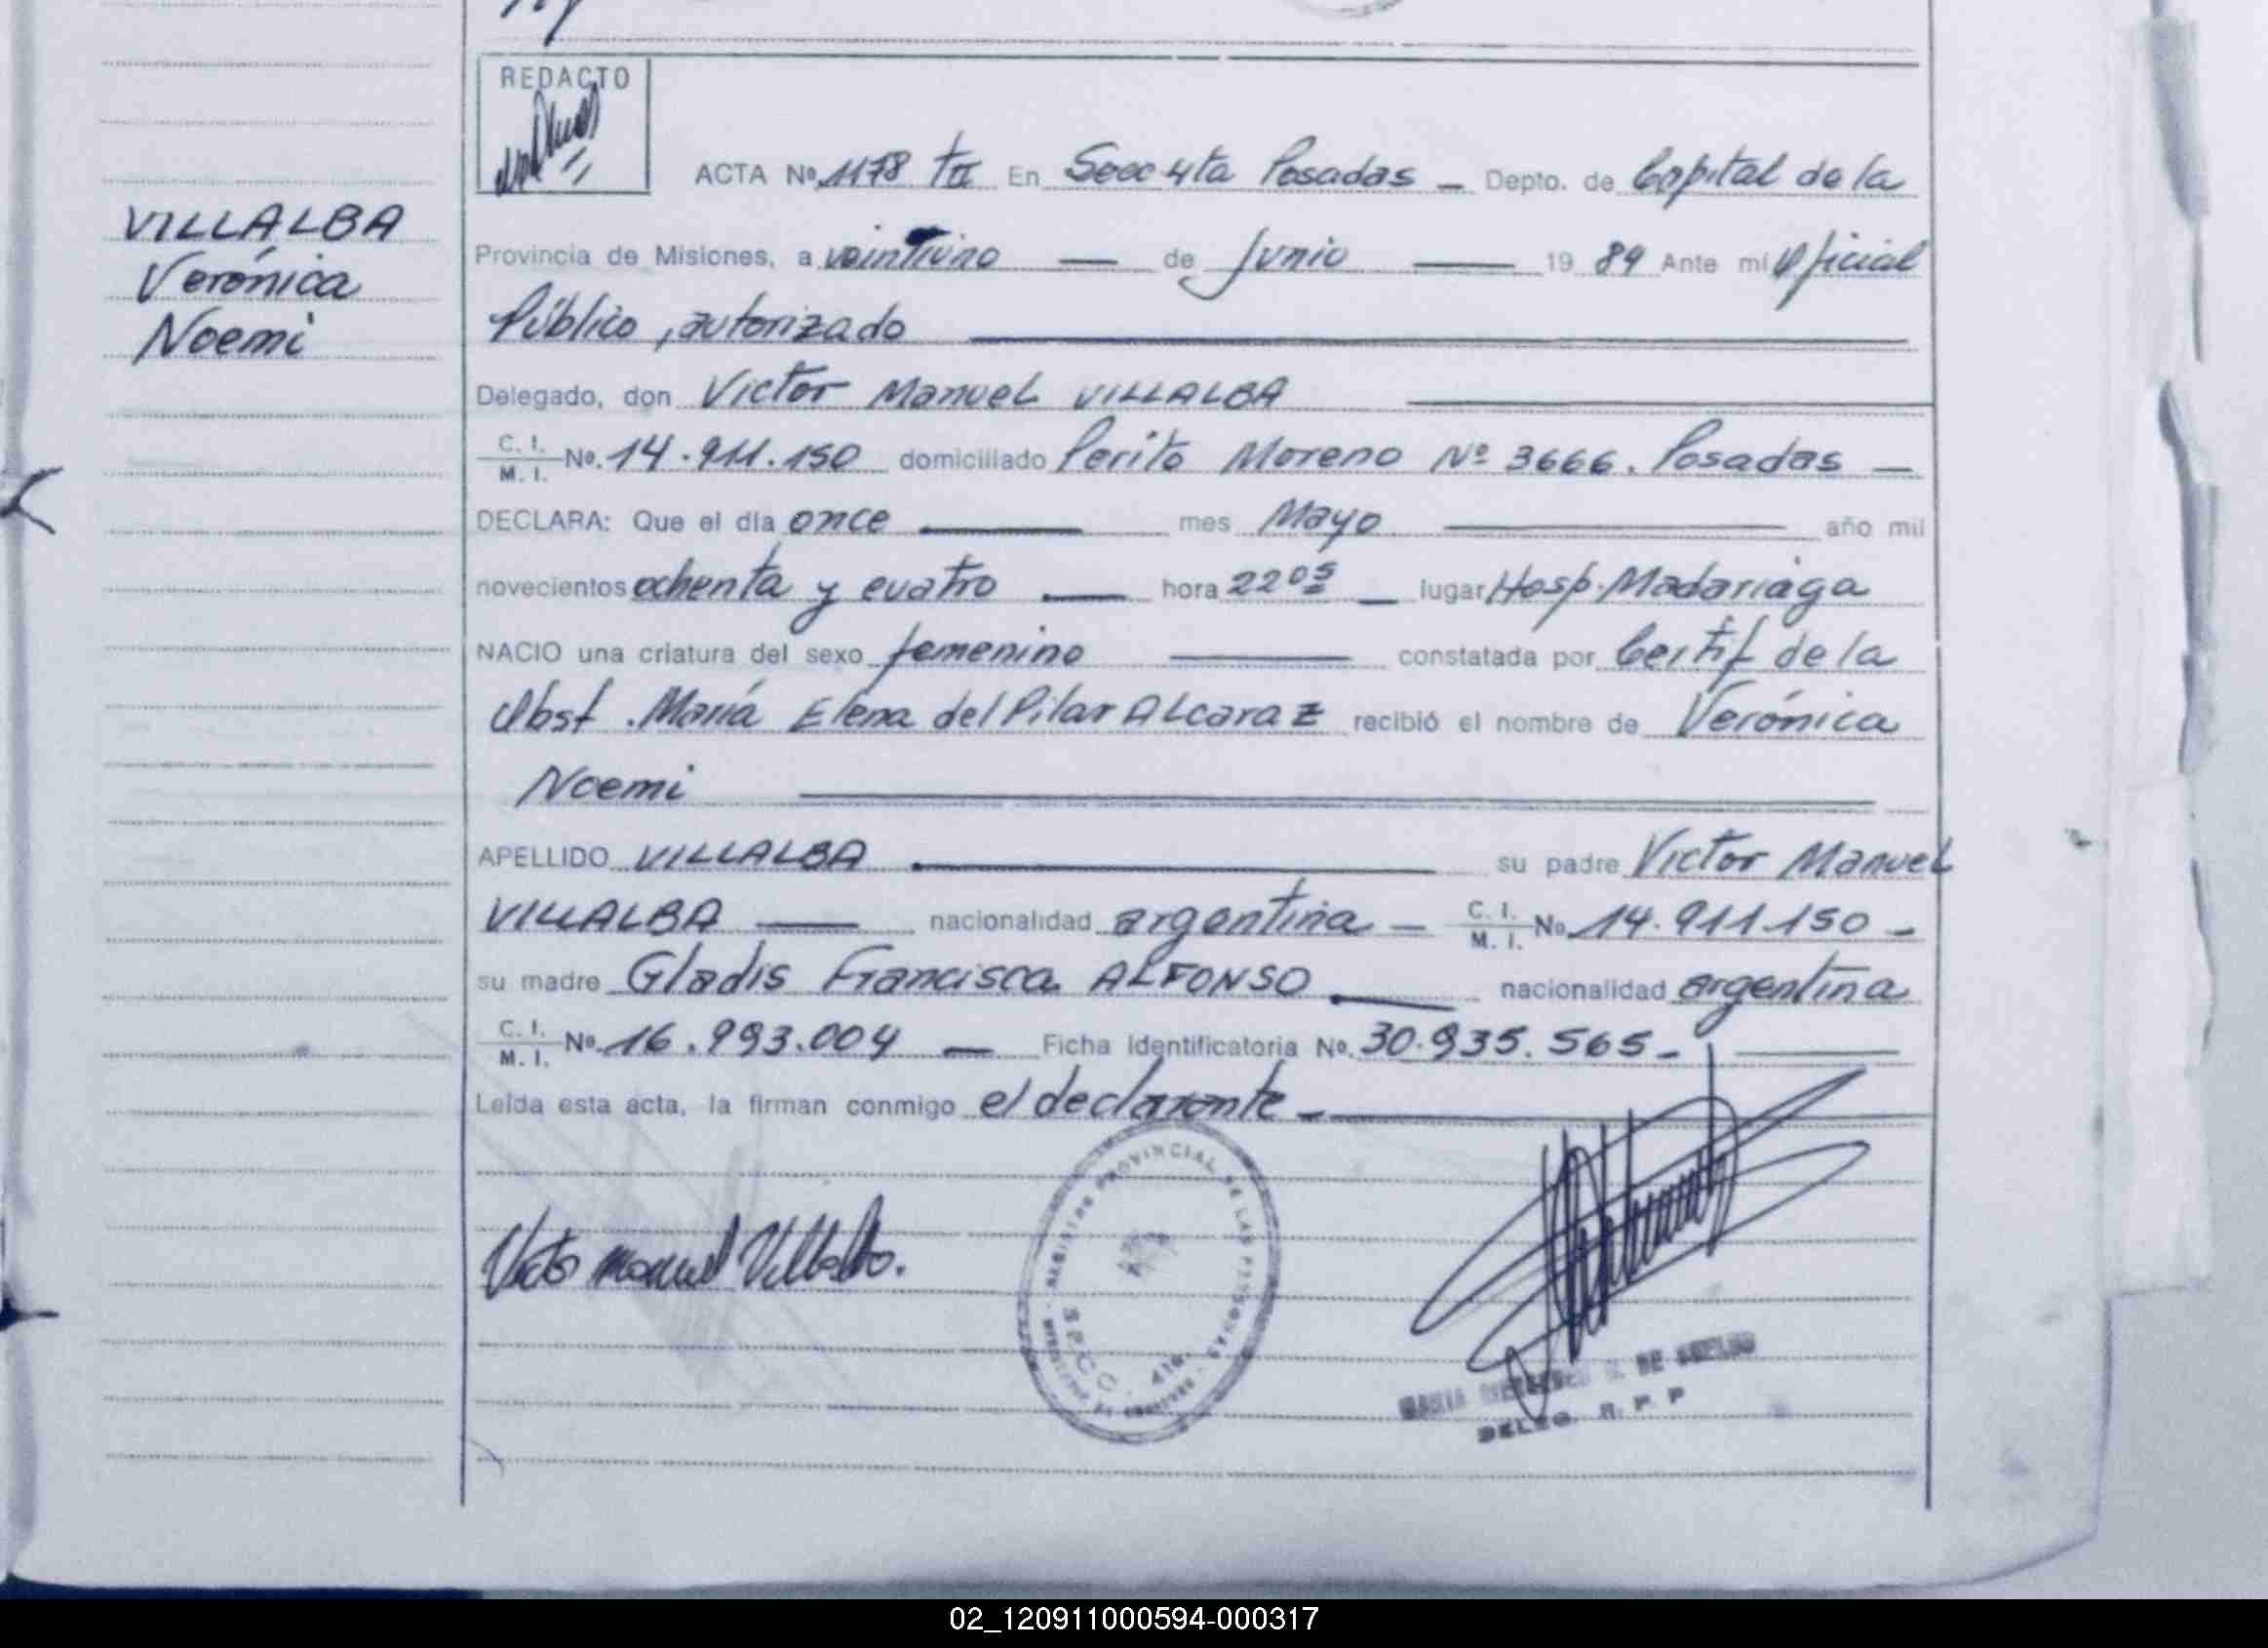 REDACTO
ACTA Nº 1178 tII En Secc 4ta Posadas - Depto. de Capital de la
VILLALBA
Verónica
Noemi
Provincia de Misiones, a veintiuno — de Junio — 19 89 Ante mí Oficial
Público, autorizado
Delegado, don Victor Manuel VILLALBA
C. I. M. I. Nº. 14.911.150 domiciliado Perito Moreno Nº 3666. Posadas —
DECLARA: Que el día once — mes Mayo — año mil
novecientos ochenta y cuatro — hora 22 05 — lugar Hosp. Madariaga
NACIO una criatura del sexo femenino — constatada por Certif de la
Obst. María Elena del Pilar ALcaraz recibió el nombre de Verónica
Noemi
APELLIDO VILLALBA — su padre Victor Manuel
VILLALBA — nacionalidad argentina — C. I. M. I. Nº 14.911.150 -
su madre Gladis Francisca ALFONSO — nacionalidad argentina
C. I. M. I. Nº. 16.993.004 — Ficha identificatoria Nº. 30.935.565 -
Leída esta acta, la firman conmigo el declarante -
Victor manuel Villalba.
PROVINCIAL DE LAS PERSONAS
DELEG. R. P. P
02_120911000594-000317